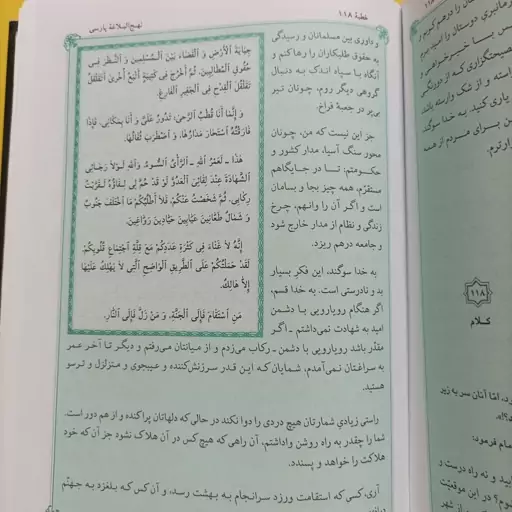 خطبهٔ ۱۱۸
نهج‌البلاغهٔ پارسی
جِبَايَةَ الْأَرْضِ وَ الْقَضَاءَ بَيْنَ الْمُسْلِمِينَ وَ النَّظَرَ فِي
حُقُوقِ الْمُطَالِبِينَ، ثُمَّ أَخْرُجَ فِي كَتِيبَةٍ أَتْبَعُ أُخْرَى أَتَقَلْقَلُ
تَقَلْقُلَ الْقِدْحِ فِي الْجَفِيرِ الْفَارِغِ.
وَ إِنَّمَا أَنَا قُطْبُ الرَّحَى، تَدُورُ عَلَيَّ وَ أَنَا بِمَكَانِي، فَإِذَا
فَارَقْتُهُ اسْتَحَارَ مَدَارُهَا، وَ اضْطَرَبَ ثِفَالُهَا.
هَذَا ـ لَعَمْرُ اللَّهِ ـ الرَّأْيُ السُّوءُ. وَ اللَّهِ لَوْلَا رَجَائِي
الشَّهَادَةَ عِنْدَ لِقَائِيَ الْعَدُوَّ لَوْ قَدْ حُمَّ لِي لِقَاؤُهُ لَقَرَّبْتُ
رِكَابِي، ثُمَّ شَخَصْتُ عَنْكُمْ، فَلَا أَطْلُبُكُمْ مَا اخْتَلَفَ جَنُوبٌ
وَ شَمَالٌ طَعَّانِينَ عَيَّابِينَ حَيَّادِينَ رَوَّاغِينَ.
إِنَّهُ لَا غَنَاءَ فِي كَثْرَةِ عَدَدِكُمْ مَعَ قِلَّةِ اجْتِمَاعِ قُلُوبِكُمْ.
لَقَدْ حَمَلْتُكُمْ عَلَى الطَّرِيقِ الْوَاضِحِ الَّتِي لَا يَهْلِكُ عَلَيْهَا
إِلَّا هَالِكٌ.
مَنِ اسْتَقَامَ فَإِلَى الْجَنَّةِ، وَ مَنْ زَلَّ فَإِلَى النَّارِ.
و داوری بین مسلمانان و رسیدگی
به حقوق طلبکاران را رها کنم و
آنگاه با سپاه اندک به دنبال
گروهی دیگر روم، چونان تیر
بی‌پر در جعبهٔ فراخ.
جز این نیست که من، چونان
محور سنگ آسیا، مدار کشور و
حکومتم: تا در جایگاهم
مستقرّم، همه چیز بجا و بسامان
است و اگر آن را وانهم، چرخ
زندگی و نظام از مدار خارج شود
و جامعه درهم ریزد.
به خدا سوگند، این فکر بسیار
بد و نادرستی است. به خدا قسم،
اگر هنگام رویارویی با دشمن
امید به شهادت نمی‌داشتم ـ اگر
مقدّر باشد رویارویی با دشمن ـ رکاب می‌زدم و از میانتان می‌رفتم و دیگر تا آخر عمر
به سراغتان نمی‌آمدم، شمایان که این قدر سرزنش‌کننده و عیبجوی و متزلزل و ترسو
هستید.
راستی زیادیِ شمارتان هیچ دردی را دوا نکند در حالی که دلهاتان پراکنده و از هم دور است.
شما را چقدر به راه روشن واداشتم، آن راهی که هیچ کس در آن هلاک نشود جز آن که خود
هلاکت را خواهد و پسندد.
آری، کسی که استقامت ورزد سرانجام به بهشت رسد، و آن کس که بلغزد به جهنّم
۱۱۸
کلام